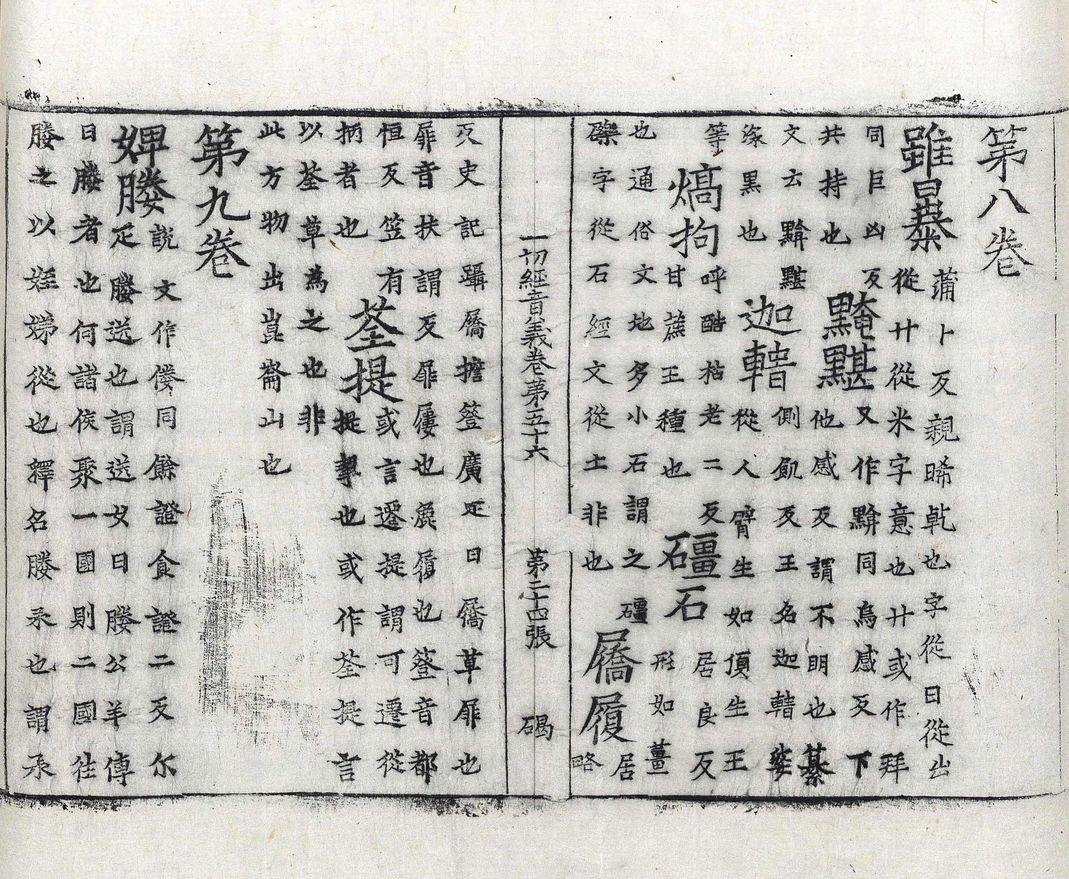 第八卷
雖㬥蒲卜反親晞乹也字從日從出
從廾從米字意也廾或作拜
同巨凶反
共持也
黤黮又作黭同烏感反下
他感反謂不明也綦
文云黭黮
深黑也
迦鞛側飢反王名迦鞛婆
從人臂生如頂生王
等
熇拘呼酷枯老二反
甘蔗王種也
礓石居良反
形如薑
也通俗文地多小石謂之礓
磔字從石經文從土非也
屩履居
略
一切經音義卷第五十六 第二十四張 碣
反史記躡屩擔簦廣疋曰屩草屝也
屝音扶謂反屝屨也麁屩也簦音都
恒反笠有
柄者也
荃提或言遷提謂可遷從
提挈也或作荃提言
以荃草為之也非
此方物出崑崙山也
第九卷
婢媵說文作倴同餘證食證二反尔
疋媵送也謂送女曰媵公羊傳
曰媵者也何諸侯聚一國則二國往
媵之以姪娣從也釋名媵承也謂承